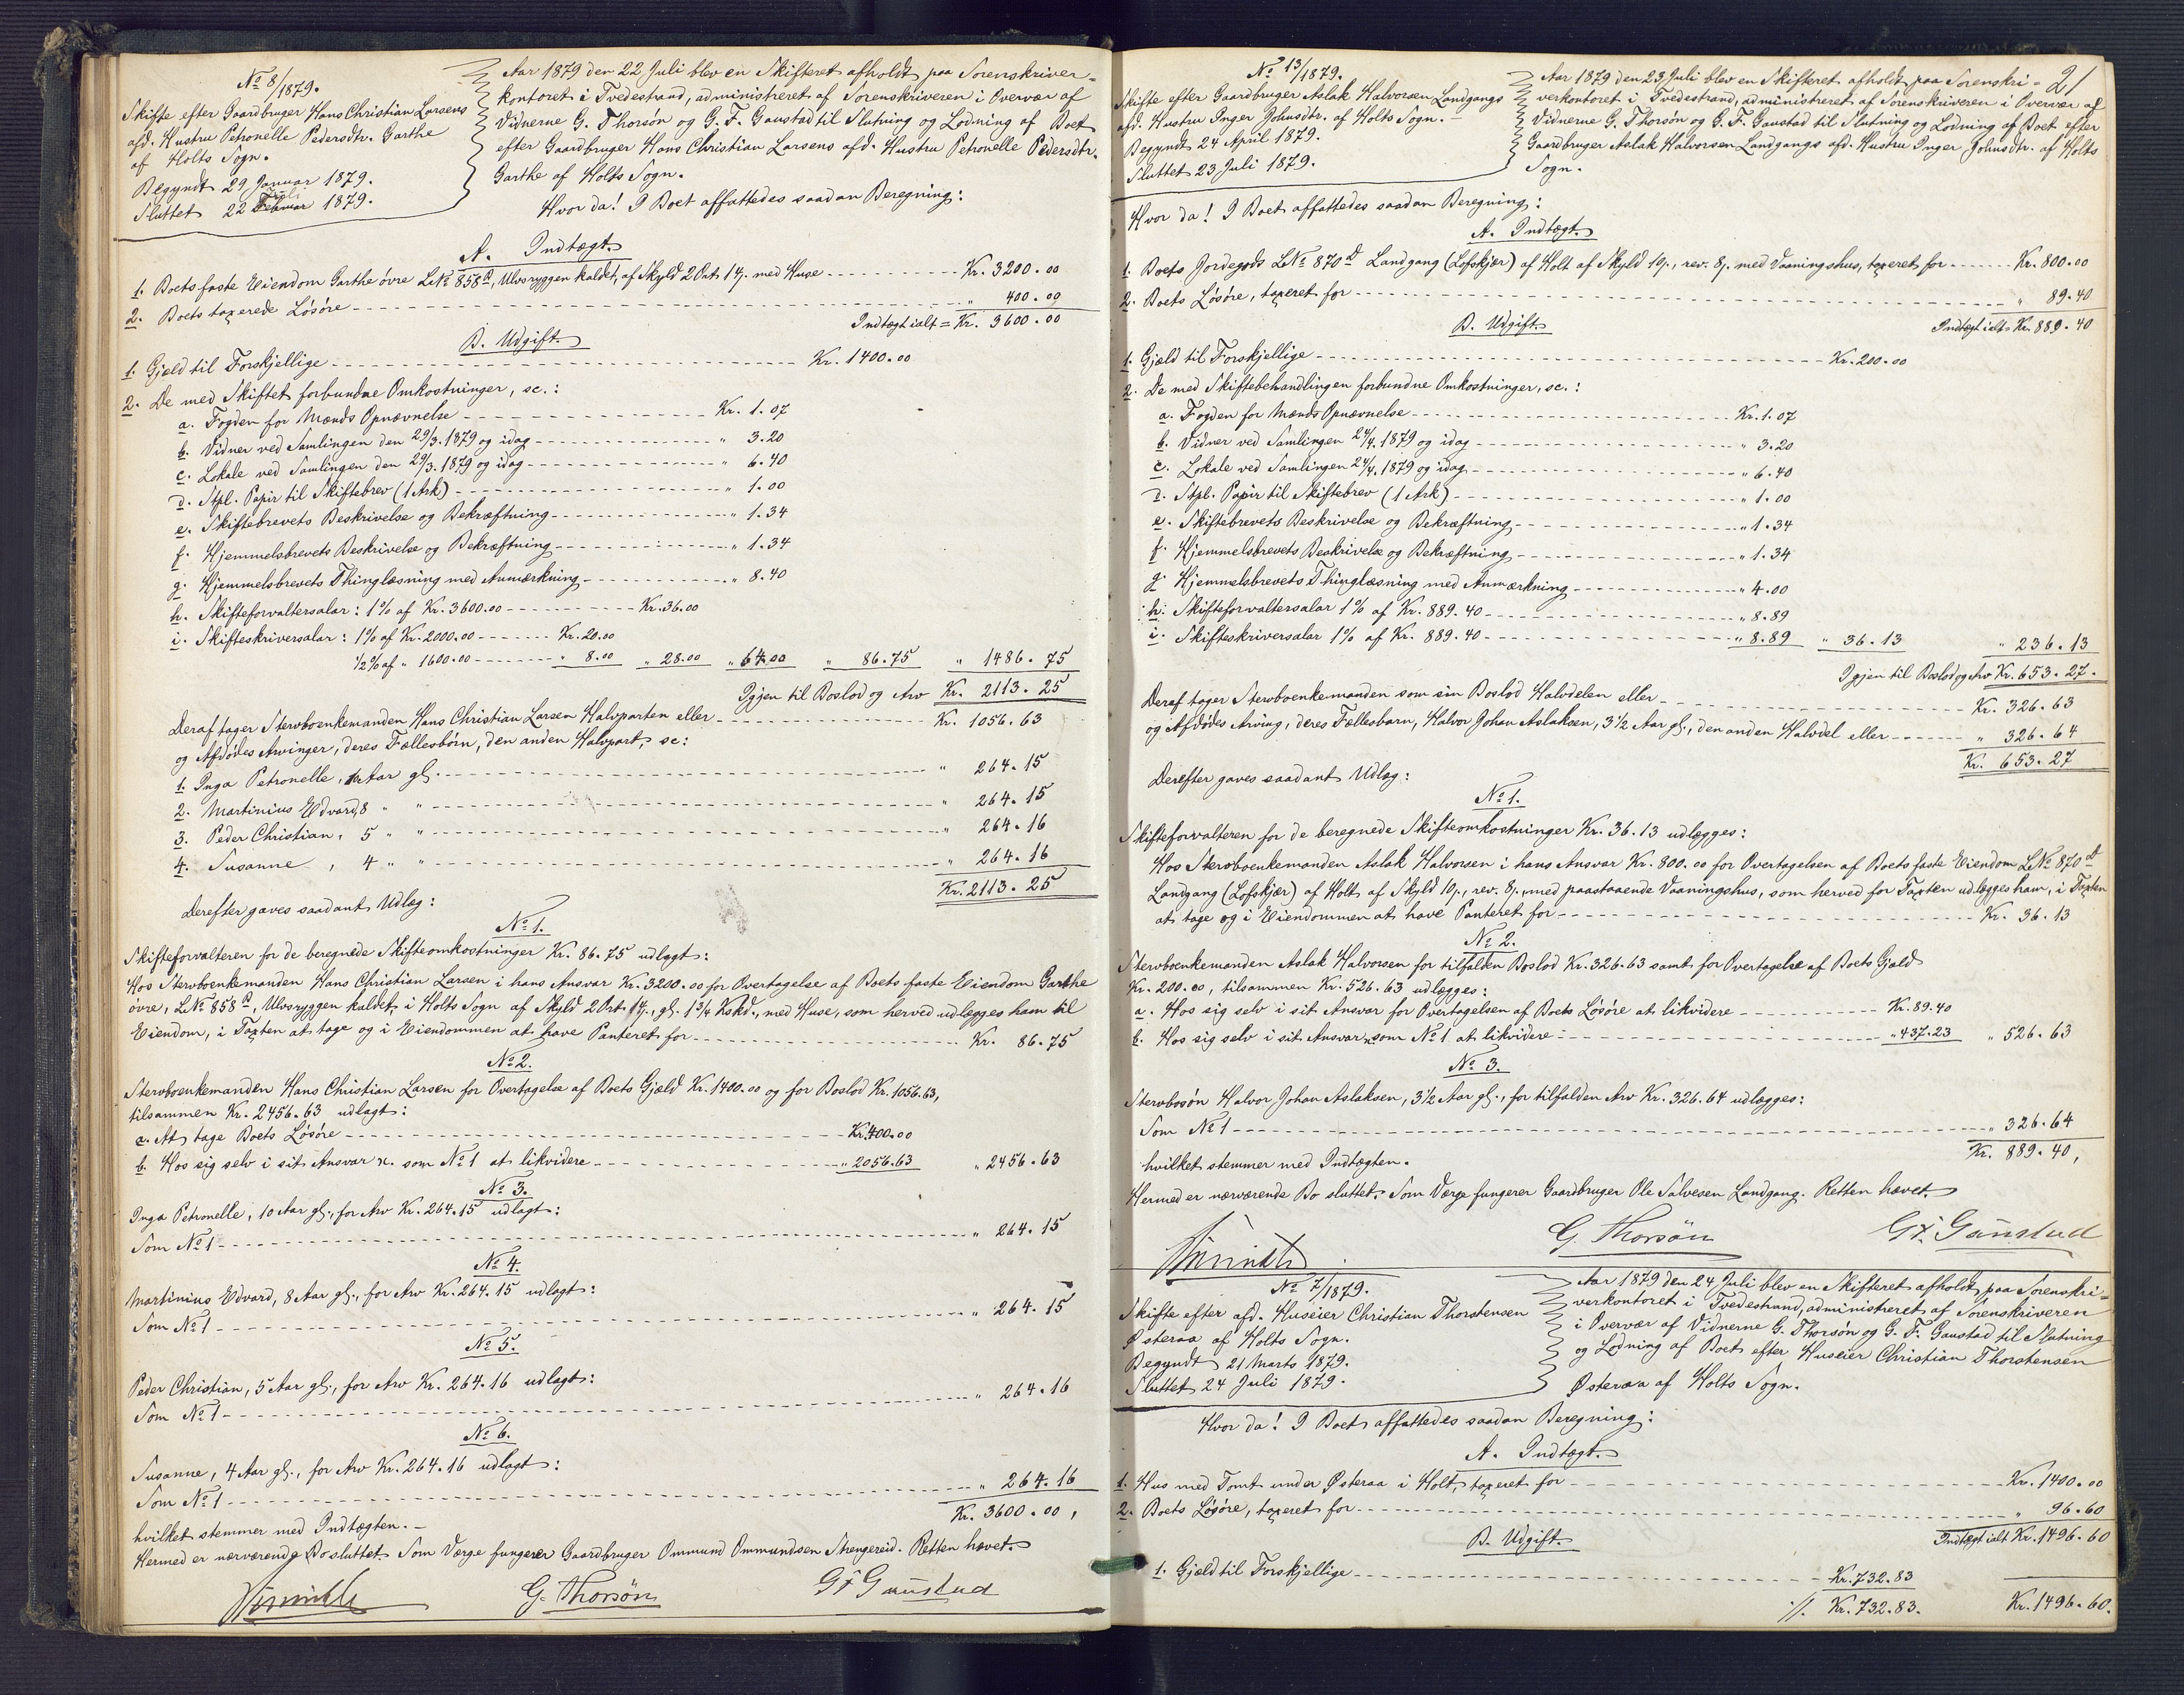 No 8/1879.
Skifte efter Gaardbruger Hans Christian Larsens
afd. Hustru Petronelle Pedersdtr. Garthe
af Holts Sogn.
Begyndt 29 Januar 1879.
Sluttet 22 Juli 1879.
Aar 1879 den 22 Juli blev en Skifteret afholdt paa Sorenskriver-
kontoret i Tvedestrand, administreret af Sorenskriveren i Overvær af
Vidnerne G. Thorsøn og G. F. Gaustad til Slutning og Lodning af Boet
efter Gaardbruger Hans Christian Larsens afd. Hustru Petronelle Pedersdtr.
Garthe af Holts Sogn.
Hvor da! I Boet affattedes saadan Beregning:
A. Indtægt.
1. Boets faste Eiendom Garthe øvre LNo 858a, Ulvsryggen kaldet, af Skyld 2 Ort 14 med Huse Kr. 3200.00
2. Boets taxerede Løsøre " 400.00
Indtægt ialt = Kr. 3600.00
B. Udgift.
1. Gjæld til Forskjellige Kr. 1400.00
2. De med Skiftet forbundne Omkostninger, sc.:
a. Fogden for Mænds Opnævnelse Kr. 1.07
b. Vidner ved Samlingen den 29/3. 1879 og idag " 3.20
c. Lokale ved Samlingen den 29/3. 1879 og idag " 6.40
d. Stpl. Papir til Skiftebrev (1 Ark) " 1.00
e. Skiftebrevets Beskrivelse og Bekræftning " 1.34
f. Hjemmelsbrevets Beskrivelse og Bekræftning " 1.34
g. Hjemmelsbrevets Thinglæsning med Anmærkning " 8.40
h. Skifteforvaltersalar: 1% af Kr. 3600.00 Kr. 36.00
i. Skifteskriversalar: 1% af Kr. 2000.00 Kr. 20.00
1/2% af " 1600.00 " 8.00 " 28.00 " 64.00 " 86.75 " 1486.75
Igjen til Boslod og Arv Kr. 2113.25
Deraf tager Stervboenkemanden Hans Christian Larsen Halvparten eller Kr. 1056.63
og Afdødes Arvinger, deres Fællesbørn, den anden Halvpart, sc:
1. Inga Petronelle, 10 Aar gl. " 264.15
2. Martinius Edvard, 8 " " " 264.15
3. Peder Christian, 5 " " " 264.16
4. Susanne, 4 " " " 264.16
Kr. 2113.25
Derefter gaves saadant Udlæg:
No 1.
Skifteforvalteren for de beregnede Skifteomkostninger Kr. 86.75 udlagt:
Hos Stervboenkemanden Hans Christian Larsen i hans Ansvar Kr. 3200.00 for Overtagelse af Boets faste Eiendom Garthe
øvre, LNo 858a, Ulvsryggen kaldet, i Holts Sogn af Skyld 2 Ort 14, gl. 1 3/4 Kskd., med Huse, som herved udlægges ham til
Eiendom, i Taxten at tage og i Eiendommen at have Panteret for Kr. 86.75
No 2.
Stervboenkemanden Hans Christian Larsen for Overtagelse af Boets Gjæld Kr. 1400.00 og for Boslod Kr. 1056.63,
tilsammen Kr. 2456.63 udlagt:
a. At tage Boets Løsøre Kr. 400.00
b. Hos sig selv i sit Ansvar x. som No 1 at likvidere " 2056.63 " 2456.63
No 3.
Inga Petronelle, 10 Aar gl., for Arv Kr. 264.15 udlagt:
Som No 1 " 264.15
No 4.
Martinius Edvard, 8 Aar gl., for Arv Kr. 264.15 udlagt:
Som No 1 " 264.15
No 5.
Peder Christian, 5 Aar gl., for Arv Kr. 264.16 udlagt:
Som No 1 " 264.16
No 6.
Susanne, 4 Aar gl., for Arv Kr. 264.16 udlagt:
Som No 1 " 264.16
Kr. 3600.00,
hvilket stemmer med Indtægten.
Hermed er nærværende Bo sluttet. Som Værge fungerer Gaardbruger Ommund Ommundsen Strengereid. Retten hævet.
G. Thorsøn GF Gaustad
21
No 13/1879.
Skifte efter Gaardbruger Aslak Halvorsen Landgangs
afd. Hustru Inger Johnsdtr. af Holts Sogn.
Begyndt 24 April 1879.
Sluttet 23 Juli 1879.
Aar 1879 den 23 Juli blev en Skifteret afholdt paa Sorenskri-
verkontoret i Tvedestrand, administreret af Sorenskriveren i Overvær af
Vidnerne G. Thorsøn og G. F. Gaustad til Slutning og Lodning af Boet efter
Gaardbruger Aslak Halvorsen Landgangs afd. Hustru Inger Johnsdtr. af Holts
Sogn.
Hvor da! I Boet affattedes saadan Beregning:
A. Indtægt.
1. Boets Jordegods LNo 870d Landgang (Lofskjær) af Holt af Skyld 10, rev. 8 med Vaaningshus, taxeret for Kr. 800.00
2. Boets Løsøre, taxeret for " 89.40
Indtægt ialt Kr. 889.40
B. Udgift.
1. Gjæld til Forskjellige Kr. 200.00
2. De med Skiftebehandlingen forbundne Omkostninger, sc.:
a. Fogden for Mænds Opnævnelse Kr. 1.07
b. Vidner ved Samlingen 24/4. 1879 og idag " 3.20
c. Lokale ved Samlingen 24/4. 1879 og idag " 6.40
d. Stpl. Papir til Skiftebrev (1 Ark) " 1.00
e. Skiftebrevets Beskrivelse og Bekræftning " 1.34
f. Hjemmelsbrevets Beskrivelse og Bekræftning " 1.34
g. Hjemmelsbrevets Thinglæsning med Anmærkning " 4.00
h. Skifteforvaltersalar 1% af Kr. 889.40 " 8.89
i. Skifteskriversalar 1% af Kr. 889.40 " 8.89 " 36.13 " 236.13
Igjen til Boslod og Arv Kr. 653.27.
Deraf tager Stervboenkemanden som sin Boslod Halvdelen eller Kr. 326.63
og Afdødes Arving, deres Fællesbarn, Halvor Johan Aslaksen, 3 1/2 Aar gl., den anden Halvdel eller " 326.64
Kr. 653.27
Derefter gaves saadant Udlæg:
No 1.
Skifteforvalteren for de beregnede Skifteomkostninger Kr. 36.13 udlægges:
Hos Stervboenkemanden Aslak Halvorsen i hans Ansvar Kr. 800.00 for Overtagelsen af Boets faste Eiendom LNo 870d
Landgang (Lofskjær) af Holt af Skyld 10, rev. 8, med paastaaende Vaaningshus, som herved for Taxten udlægges ham, i Taxten
at tage og i Eiendommen at have Panteret for Kr. 36.13
No 2.
Stervboenkemanden Aslak Halvorsen for tilfalden Boslod Kr. 326.63 samt for Overtagelse af Boets Gjæld
Kr. 200.00, tilsammen Kr. 526.63 udlægges:
a. Hos sig selv i sit Ansvar for Overtagelsen af Boets Løsøre at likvidere Kr. 89.40
b. Hos sig selv i sit Ansvar x. som No 1 at likvidere " 437.23 " 526.63
No 3.
Stervbosøn Halvor Johan Aslaksen, 3 1/2 Aar gl., for tilfalden Arv Kr. 326.64 udlægges:
Som No 1 " 326.64
Kr. 889.40,
hvilket stemmer med Indtægten.
Hermed er nærværende Bo sluttet. Som Værge fungerer Gaardbruger Ole Salvesen Landgang. Retten hævet.
G. Thorsøn GF. Gaustad
No 7/1879.
Skifte efter afd. Huseier Christian Thorstensen
Østeraa af Holts Sogn.
Begyndt 21 Marts 1879.
Sluttet 24 Juli 1879.
Aar 1879 den 24 Juli blev en Skifteret afholdt paa Sorenskri-
verkontoret i Tvedestrand, administreret af Sorenskriveren
i Overvær af Vidnerne G. Thorsøn og G. F. Gaustad til Slutning
og Lodning af Boet efter Huseier Christian Thorstensen
Østeraa af Holts Sogn.
Hvor da! I Boet affattedes saadan Beregning:
A. Indtægt.
1. Hus med Tomt under Østeraa i Holt, taxeret for Kr. 1400.00
2. Boets Løsøre, taxeret for " 96.60
Indtægt ialt Kr. 1496.60
B. Udgift.
1. Gjæld til Forskjellige Kr. 732.83
./. Kr. 732.83. Kr. 1496.60.